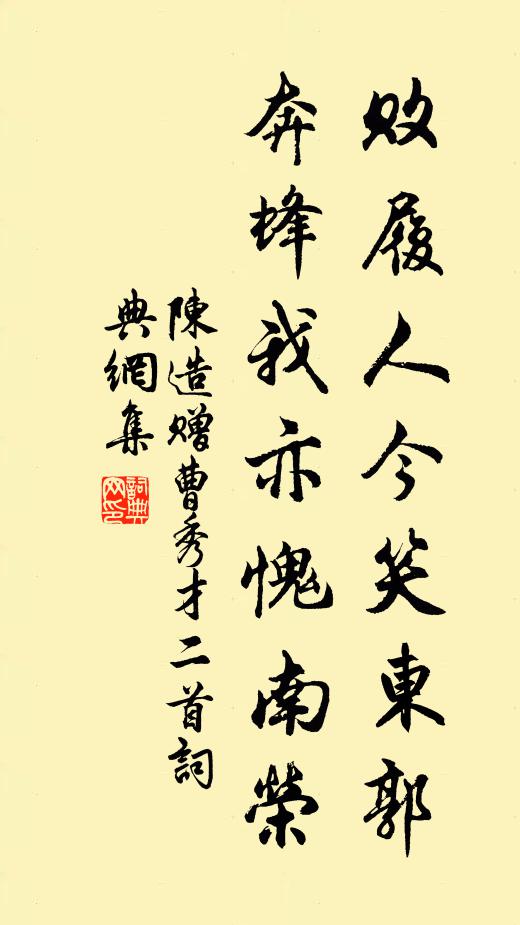 敗履人今笑東郭
奔蜂我亦愧南榮
陳造贈曹秀才二首詞
典網集
詞典網印